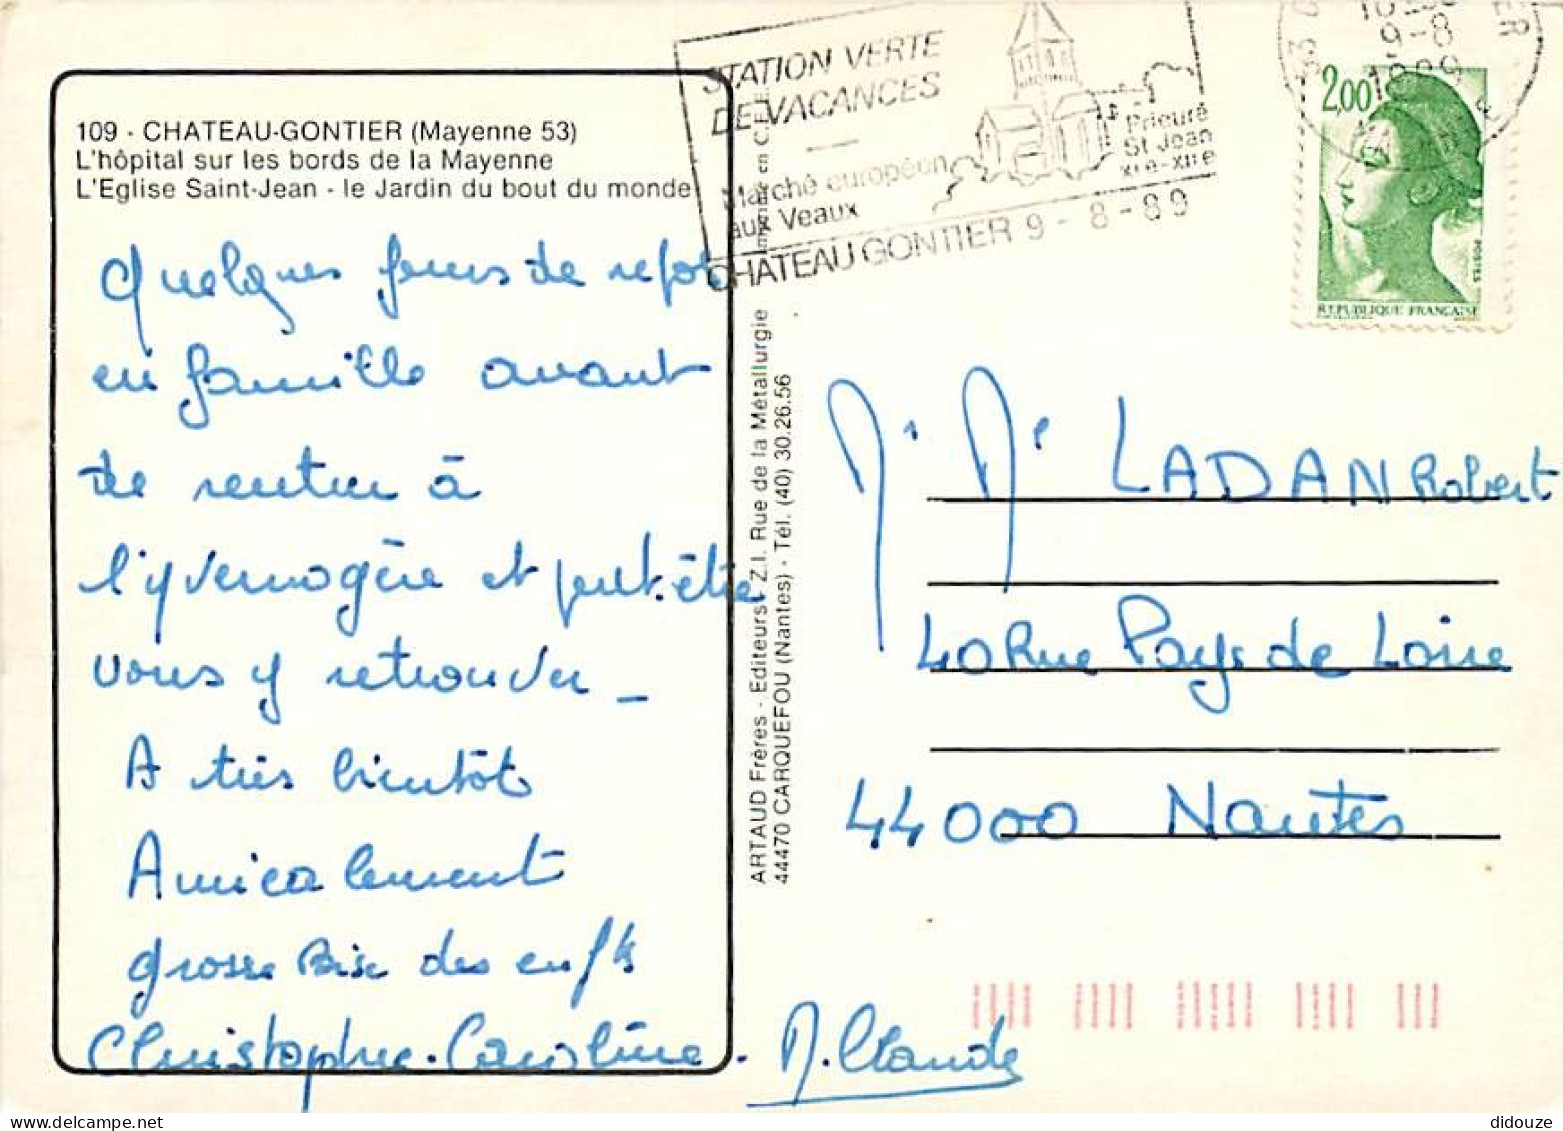 STATION VERTE
DE VACANCES
Marché européen
aux Veaux
Prieuré
St Jean
XIe-XIIe
CHATEAU GONTIER 9-8-89
9-8
1989
2,00
POSTES
REPUBLIQUE FRANÇAISE
109 - CHATEAU-GONTIER (Mayenne 53)
L'hôpital sur les bords de la Mayenne
L'Eglise Saint-Jean - le Jardin du bout du monde
Quelques jours de repos
en famille avant
de rentrer à
l'yvernogère et peut-être
vous y retrouver _
A très bientôt
Amicalement
grosse Bise des enfts
Christophe. Caroline. M. Claude
ARTAUD Frères - Editeurs - Z.I. Rue de la Métallurgie
44470 CARQUEFOU (Nantes) - Tél. (40) 30.26.56
Mr Me LADAN Robert
40 Rue Pays de Loire
44000 Nantes
didouze